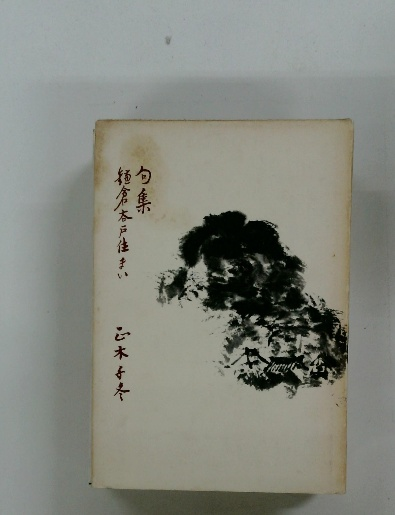 句集
鎌倉谷戸住まい
正木千冬